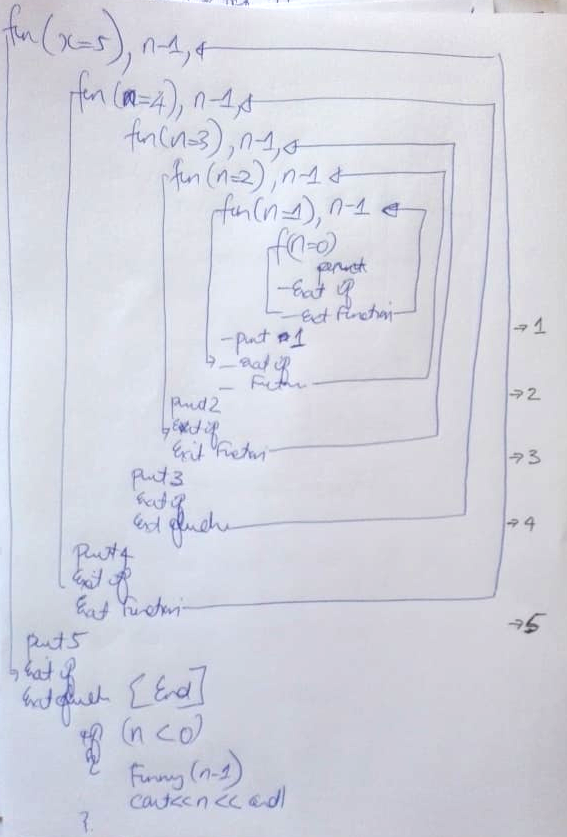 fun(x=5), n-1,
fun(n=4), n-1,
fun(n=3), n-1,
fun(n=2), n-1
fun(n=1), n-1
f(n=0)
- Exit if
- Exit Function
→ 1
- print 1
- Exit if
-
→ 2
print 2
Exit if
Exit Function
→ 3
print 3
Exit if
Exit
→ 4
print 4
Exit if
Exit Function
→ 5
print 5
Exit if
Exit [End]
if (n<0)
{
Funny (n-1)
cout<<n<<endl
}